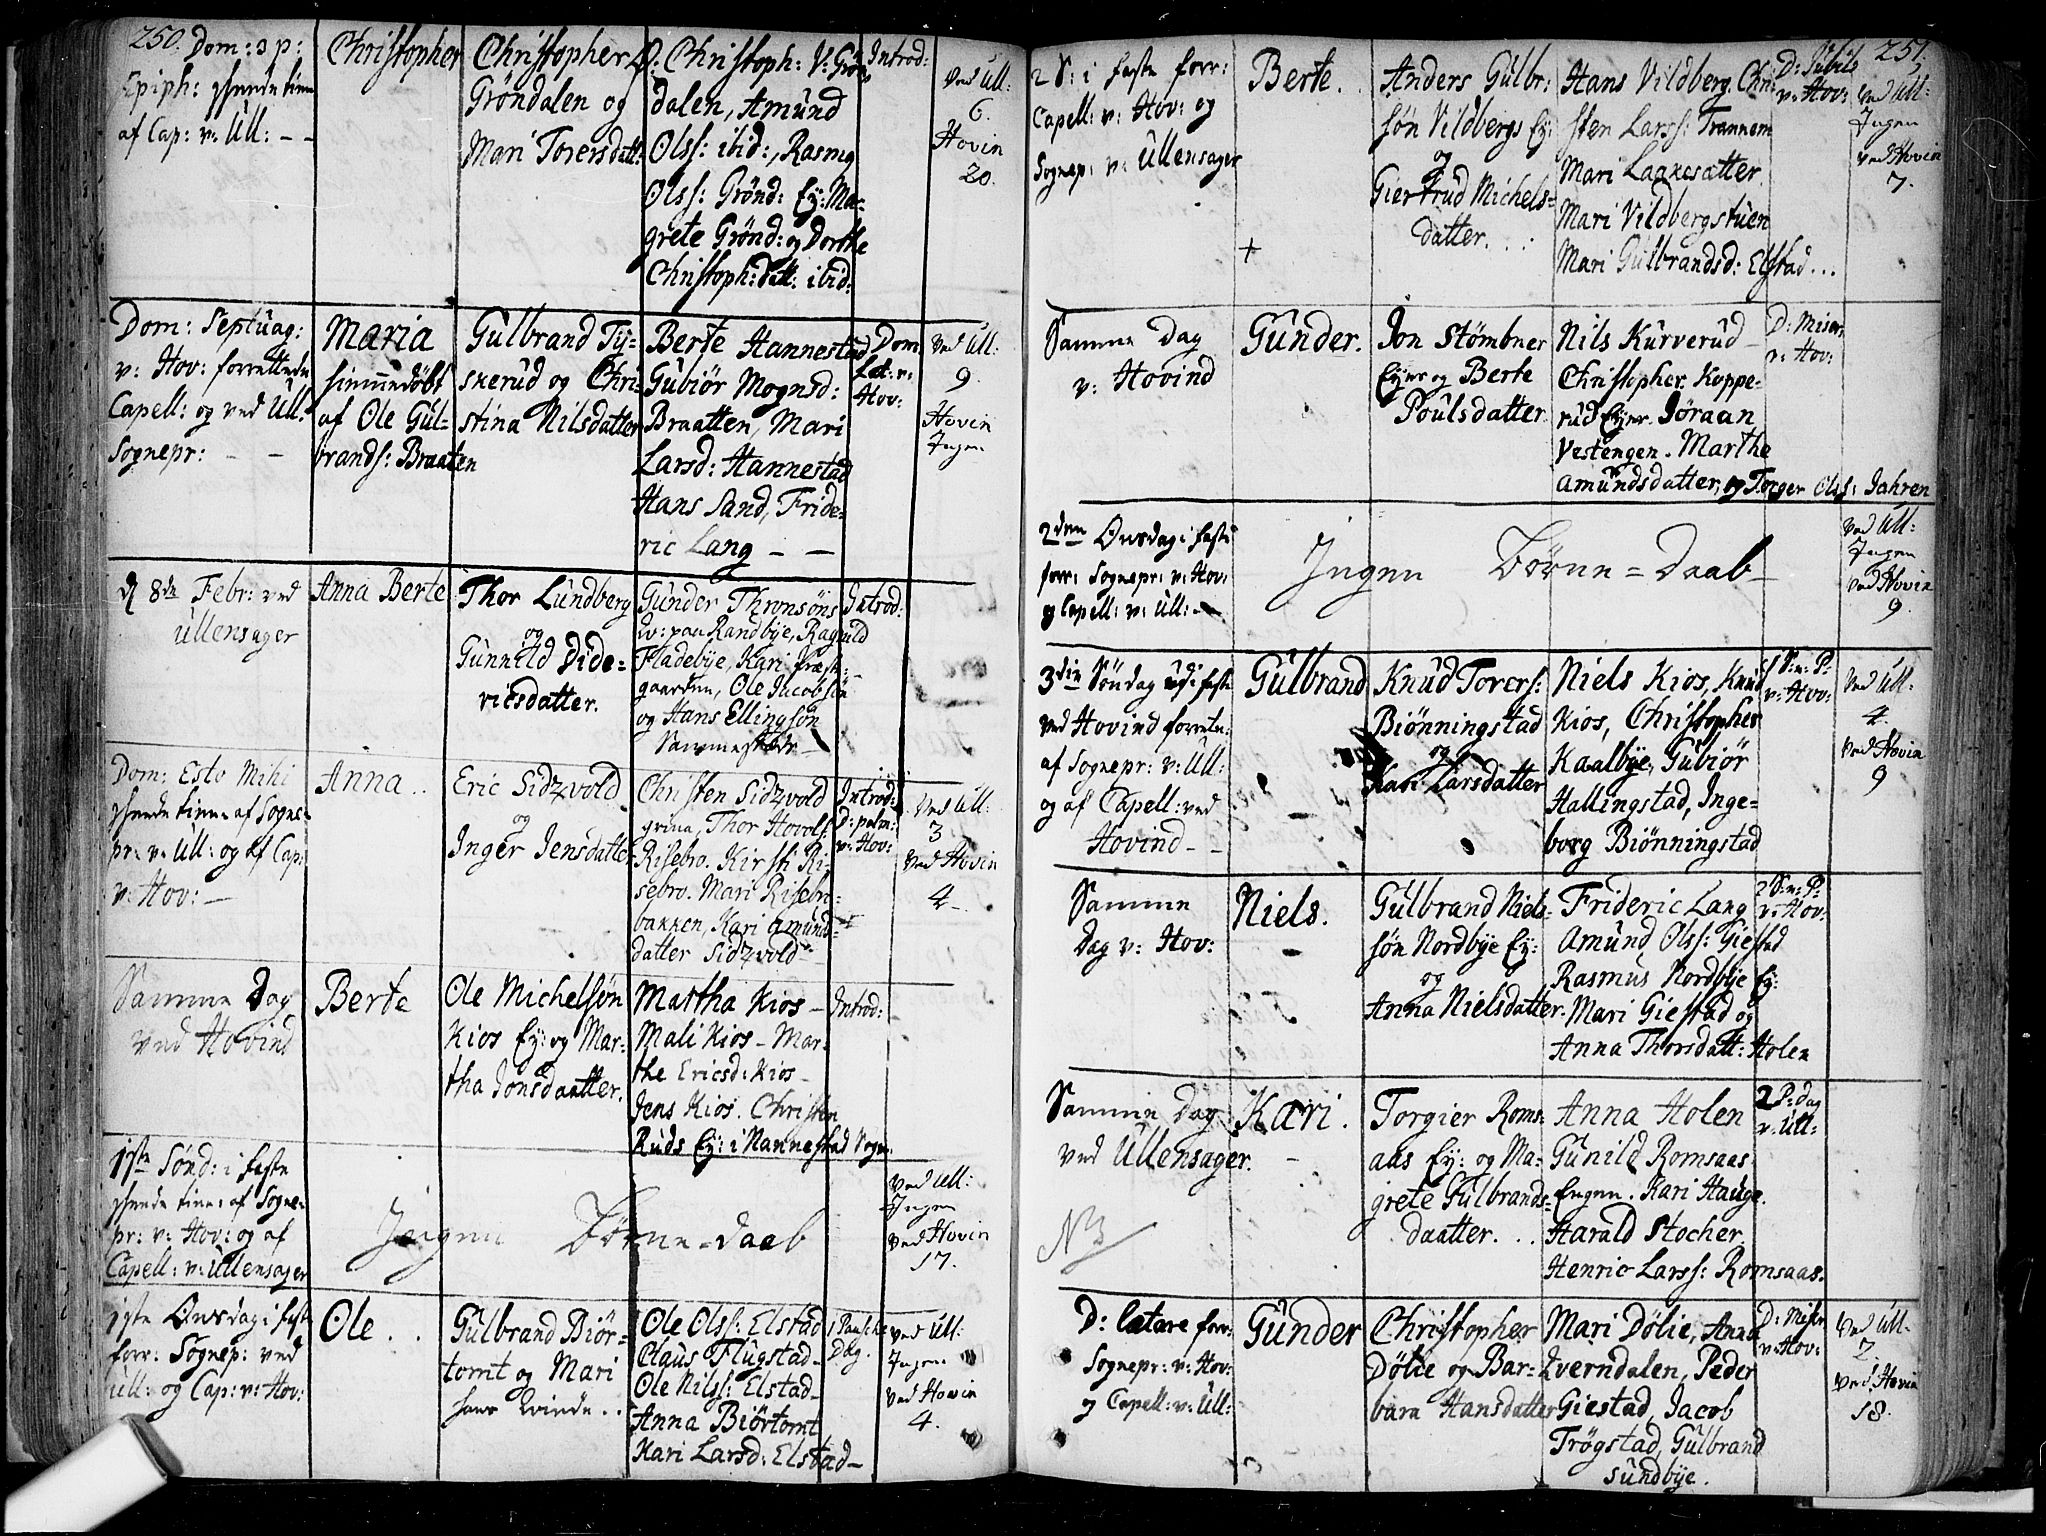 250.
Dom: 3 p:
Epiph:
af Cap: v: Ull: - -
Christopher
Christopher
Grøndalen og
Mari Torersdatt:
Christoph: v: Grøn
dalen, Amund
Olss: ibid:, Rasmg
Olss: Grønd: Ey: Mar-
grete Grønd: og Dorthe
Christoph: datt: ibid:
Introd:
ved Ull:
6.
Hovin
20.
Dom: Septuag:
v: Hov: forrettede
Capell: og ved Ull:
Sognepr: - -
Maria
hiemmedøbt
af Ole Gul-
brands: Braaten
Gulbrand Ty-
skerud og Chri-
stina Nilsdatter
Berte Hannestad
Gubiør Mognsd:
Braatten, Mari
Larsd: Hannestad
Hans Sand, Fride-
ric Lang - -
Dom
Læt: v:
Hov:
ved Ull:
9.
Hovin
Ingen
d 8de Febr: ved
Ullensager
Anna Berte
Thor Lundberg
og
Gunnild Dide-
ricsdatter.
Gunder Thronsøns
Kv: paa Randbye, Ragnild
Fladebye, Kari Præste-
gaarden, Ole Jacobsøn
og Hans Ellingsøn
Sammestæds -
Introd:
Dom: Esto Mihi
af Sogne-
pr: v: Ull: og af Cap:
v: Hov: -
Anna . .
Eric Sidzvold
og
Inger Jensdatter
Christen Sidzvold
grina, Thor Hovols:
Risebro. Kirsti Ri-
sebro. Mari Risebro-
bakken, Kari Amunds-
datter Sidzvold
Introd:
D: palm:
v: Hov:
ved Ull:
3.
ved Hovin
4 -
Samme Dag
ved Hovind
Berte
Ole Michelsøn
Kios Ey: og Mar-
tha Jonsdaatter.
Martha Kios -
Mali Kios - Mar-
the Ericsd: Kios -
Jens Kios. Christen
Ruds Ey: i Nannestad Sogn.
Introd:
1ste Sønd: i faste
af Sogne-
pr: v: Hov: og af
Capell: v: Ullensager
Ingen Børne-daab
ved Ull:
Ingen
ved Hovin
17.
1ste Onsdag i faste
forr: Sognep: ved
Ull: og Cap: v: Hov:
Ole . .
Gulbrand Biør-
tomt og Mari
hans Kvinde . .
Ole Olss: Elstad
Claus Flugstad -
Ole Nilss: Elstad -
Anna Biørtomt
Kari Larsd: Elstad -
1 Paasche
Dag.
ved Ull:
Ingen
ved Hovin
4.
251
2 S: i faste forr:
Capell: v: Hov: og
Sognep: v: Ullensager
Berte. .
+
Anders Gulbr:
søn Vildbergs Ey:
og
Giertrud Michels-
datter. . :
Hans Vildberg. Chri-
sten Larss: Trannem
Mari Laakesætter
Mari Vildbergstuen
Mari Gulbrandsd: Elstad...
D: Jubil
v: Hov:
ved Ull:
Ingen
ved Hovin
7.
Samme Dag
v: Hovind
Gunder.
Jon Stømbner
Eyer og Berte
Poulsdatter
Nils Kurverud -
Christopher Koppe-
rud Eyer. Jøraan
Vestengen. Marthe
Amundsdatter, og Torger Olss: Jahren
D: Miser:
v: Hov:
2den Onsdag i faste
forr: Sognepr: v: Hov:
og Capell: v: Ull: -
Ingen Børne-Daab -
ved Ull:
Ingen
ved Hovin
9.
3die Søndag udi faste
ved Hovind forrette:
af Sognepr: v: Ull:
og af Capell: ved
Hovind - -
Gulbrand
Knud Torers:
Biønningstad
og
Kari Larsdatter
Niels Kios, Knud
Kios, Christopher
Kaalbye, Gubiør
Hallingstad, Inge-
borg Biønningstad
1 S: n: P:
v: Hov:
ved Ull:
4.
ved Hovin
9
Samme
Dag v: Hov:
Niels.
Gulbrand Niels-
søn Nordbye Ey:
og
Anna Nielsdatter.
Frideric Lang
Amund Olss: Giestad
Rasmus Nordbye Ey:
Mari Giestad og
Anna Thorsdatt: Holen
2 S: n: P:
v: Hov:
Samme Dag
ved Ullensager.
NB
Kari.
Torgier Roms-
aas Ey: og Ma-
grete Gulbrands-
daatter. . .
Anna Holen
Gunild Romsaas
Engen. Kari Hauge.
Harald Stocher.
Henric Larss: Romsaas.
2 P: dag
v: Ull:
D: Lætare forr:
Sognepr: v: Hov:
og Capell: v: Ull:
Gunder
Christopher
Dølie og Bar-
bara Hansdatter
Mari Dølie, Anna
Kverndalen, Peder
Giestad, Jacob
Trøgstad, Gulbrand
Sundbye.
D: Miser
v: Hov:
ved Ull:
2.
ved Hovin
18.